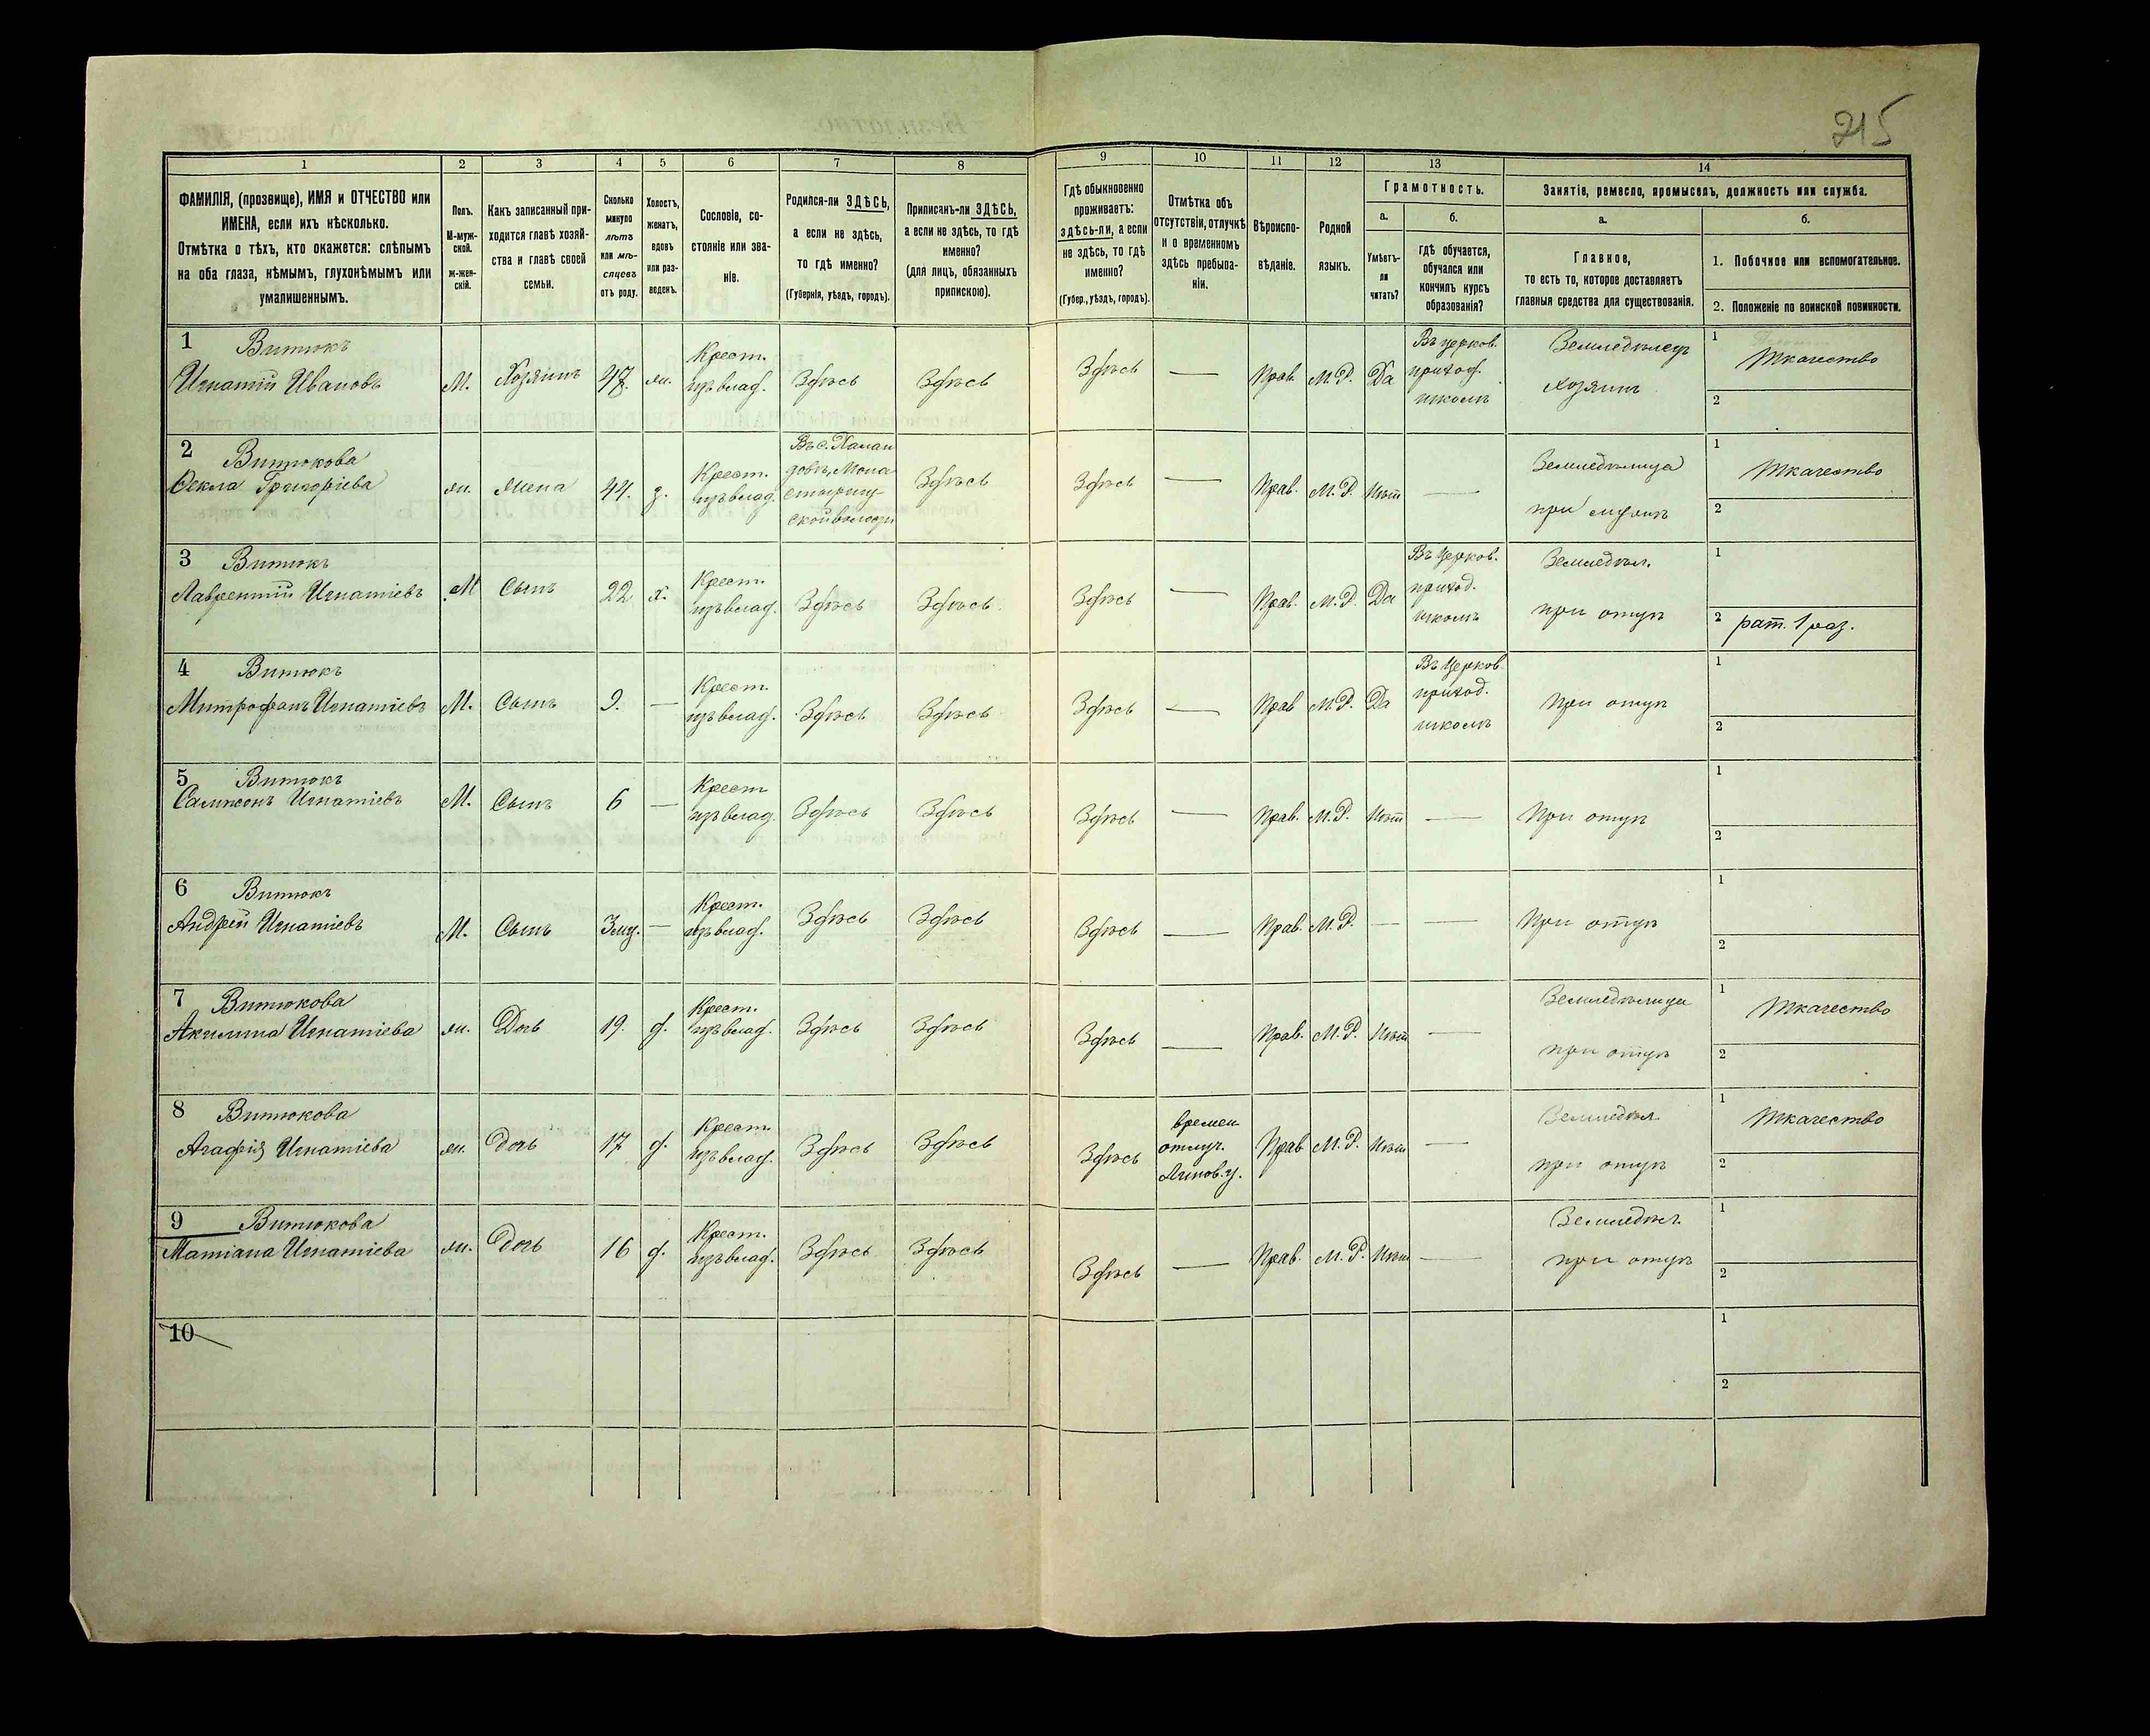 215
1 2 3 4 5 6 7 8 9 10 11 12 13 14
ФАМИЛІЯ, (прозвище), ИМЯ и ОТЧЕСТВО или
ИМЕНА, если ихъ нѣсколько.
Отмѣтка о тѣхъ, кто окажется: слѣпымъ
на оба глаза, нѣмымъ, глухонѣмымъ или
умалишеннымъ.
Полъ.
М-муж-
ской.
ж-жен-
скій.
Какъ записанный при-
ходится главѣ хозяй-
ства и главѣ своей
семьи.
Сколько
минуло
лѣтъ
или мѣ-
сяцевъ
отъ роду.
Холостъ,
женатъ,
вдовъ
или раз-
веденъ.
Сословіе, со-
стояніе или зва-
ніе.
Родился-ли ЗДѢСЬ,
а если не здѣсь,
то гдѣ именно?
(Губернія, уѣздъ, городъ).
Приписанъ-ли ЗДѢСЬ,
а если не здѣсь, то гдѣ
именно?
(для лицъ, обязанныхъ
припискою).
Гдѣ обыкновенно
проживаетъ:
здѣсь-ли, а если
не здѣсь, то гдѣ
именно?
(Губер., уѣздъ, городъ).
Отмѣтка объ
отсутствіи, отлучкѣ
и о временномъ
здѣсь пребыва-
ніи.
Вѣроиспо-
вѣданіе.
Родной
языкъ.
Грамотность.
а.
Умѣетъ-
ли
читать?
б.
гдѣ обучается,
обучался или
кончилъ курсъ
образованія?
Занятіе, ремесло, промыселъ, должность или служба.
а.
Главное,
то есть то, которое доставляетъ
главныя средства для существованія.
б.
1. Побочное или вспомогательное.
2. Положеніе по воинской повинности.
1 Витюкъ
Игнатій Ивановъ
М.
Хозяинъ
47.
жн.
Крест.
изъ влад.
Здѣсь
Здѣсь
Здѣсь
—
Прав.
М. Р.
Да
Въ церков.
приход.
школѣ
Земледѣлецъ
хозяинъ
1 Ткачество
2
2 Витюкова
Ѳекла Григоріева
жн.
Жена
44.
з.
Крест.
изъ влад.
Здѣсь
Здѣсь
—
Прав.
М. Р.
Нѣт
—
Земледѣлица
при мужѣ
1 Ткачество
2
3 Витюкъ
Лаврентій Игнатіевъ
М
Сынъ
22
х.
Крест.
изъ влад.
Здѣсь
Здѣсь
Здѣсь
—
Прав.
М. Р.
Да
Въ церков.
приход.
школѣ
Земледѣл.
при отцѣ
1
2 рат. 1 раз.
4 Витюкъ
Митрофанъ Игнатіевъ
М.
Сынъ
9.
—
Крест.
изъ влад.
Здѣсь
Здѣсь
Здѣсь
—
Прав
М. Р.
Да
Въ Церков.
приход.
школѣ
При отцѣ
1
2
5 Витюкъ
Сампсонъ Игнатіевъ
М.
Сынъ
6
—
Крест
изъ влад.
Здѣсь
Здѣсь
Здѣсь
—
Прав.
М. Р.
Нѣт
—
При отцѣ
1
2
6 Витюкъ
Андрей Игнатіевъ
М.
Сынъ
—
Крест.
изъ влад.
Здѣсь
Здѣсь
Здѣсь
—
Прав.
М. Р.
—
—
При отцѣ
1
2
7 Витюкова
Акилина Игнатіева
жн.
Дочь
19.
д.
Крест.
изъ влад.
Здѣсь
Здѣсь
Здѣсь
—
Прав.
М. Р.
Нѣт
—
Земледѣлица
при отцѣ
1 Ткачество
2
8 Витюкова
Агафія Игнатіева
жн.
Дочь
17
д.
Крест.
изъ влад.
Здѣсь
Здѣсь
Здѣсь
времен.
отлуч.
Прав
М. Р.
Нѣт
—
Земледѣл.
при отцѣ
1 Ткачество
2
9 Витюкова
Татіана Игнатіева
жн.
Дочь
16
д.
Крест.
изъ влад.
Здѣсь
Здѣсь
Здѣсь
—
Прав.
М. Р.
Нѣт
—
Земледѣл.
при отцѣ
1
2
10
1
2